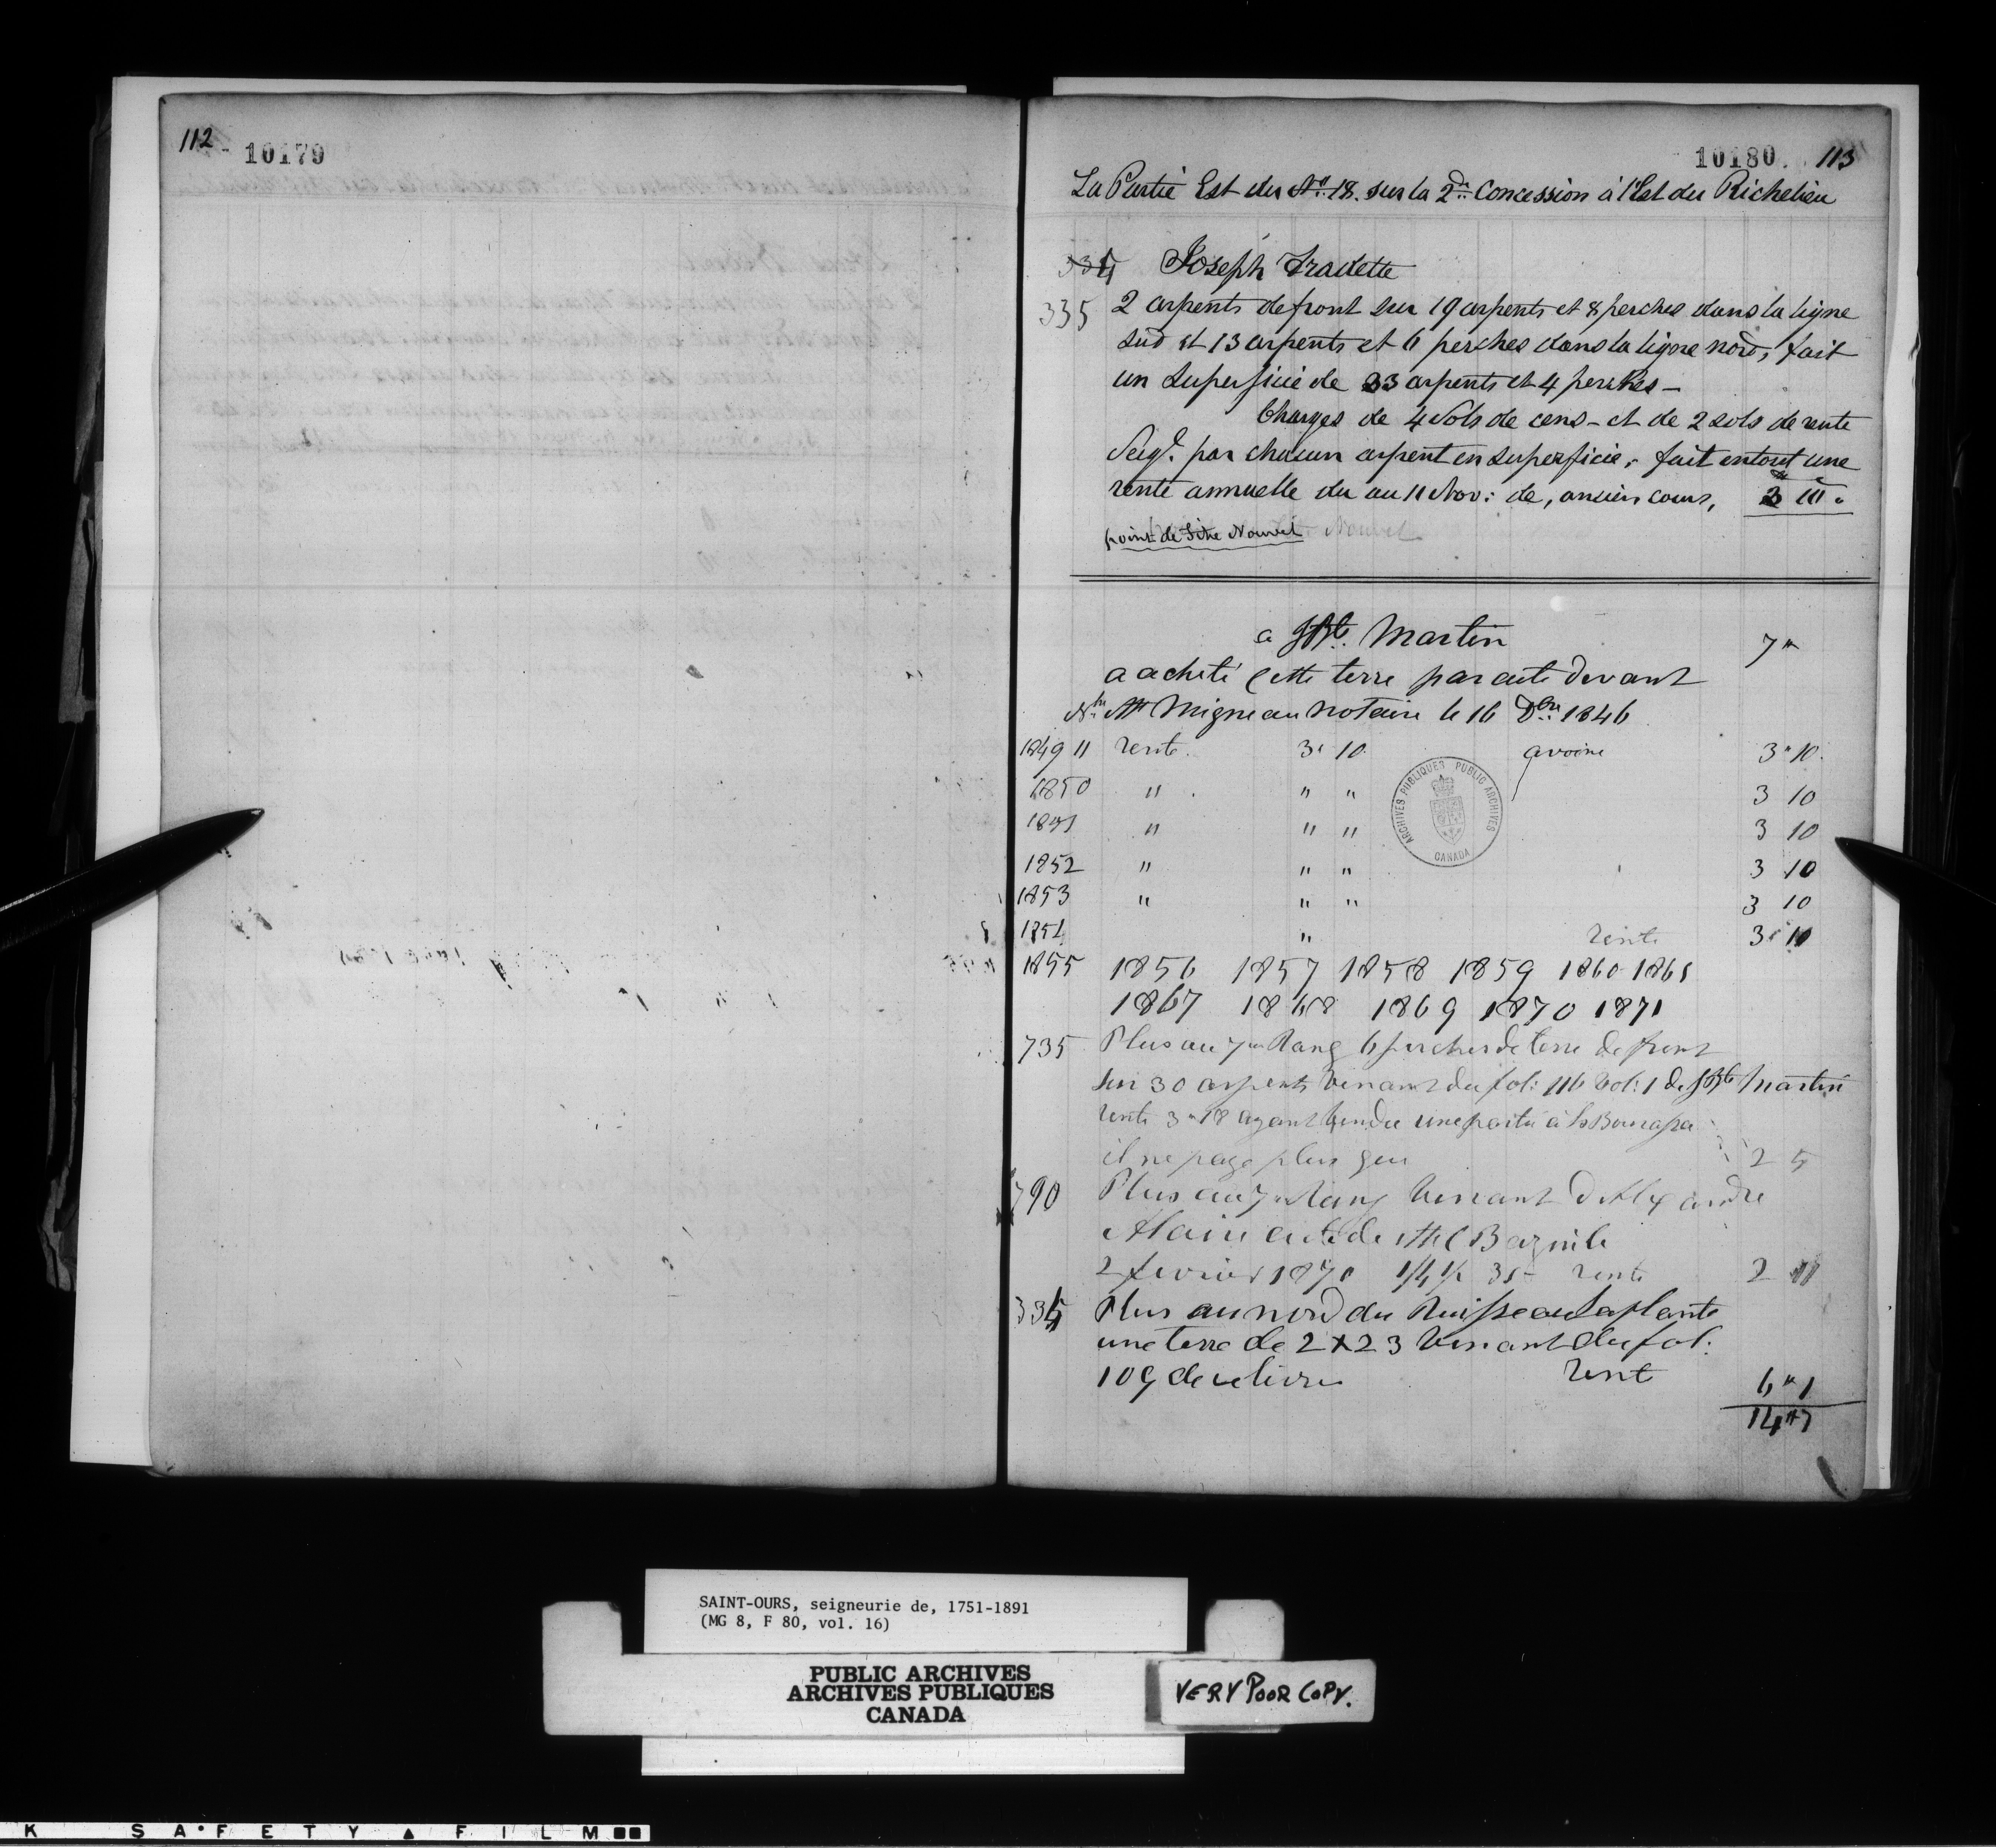 112
10179
10180. 113
La Partie Est du No. 18. sur la 2de Concession à l'Est du Richelieu
334 Joseph Fradette
335 2 arpents de front sur 19 arpents et 8 perches dans la ligne
sud et 13 arpents et 6 perches dans la ligne nord, fait
un Superficie de 33 arpents et 4 perches -
Charges de 4 Sols de cens - et de 2 sols de rente
Seigl. par chacun arpent en Superficie, fait en tout une
rente annuelle du au 11 Nov: de, ancien cours,
point de Titre Nouvel
a JBte. Martin 7"
a acheté cette terre par acte devant
Migneau notaire le 16 Dbre 1846
1849 11 rente. 3" 10 avoine 3" 10.
1850 " " " 3 10
1851 " " " 3 10
1852 " " " 3 10
1853 " " " 3 10
1854 " rente 3" 10
1855 1856 1857 1858 1859 1860 1861
1867 1868 1869 1870 1871
735 Plus au 7me Rang 6 perches de terre de front
sur 30 arpents venant du fol: 116 Vol: 1 de JBte Martin
rente 3" 18 ayant vendu une partie à
il ne paye plus que 2 5
790 Plus au 7me Rang venant d'Alexandre
Alain acte de
2 fevrier 1870 rente 2 11
334 Plus au nord du Ruisseau Laplante
une terre de 2 x 23 venant du fol:
109 de ce livre rente 6" 1
14" 7
ARCHIVES PUBLIQUES PUBLIC ARCHIVES
CANADA
SAINT-OURS, seigneurie de, 1751-1891
(MG 8, F 80, vol. 16)
PUBLIC ARCHIVES
ARCHIVES PUBLIQUES
CANADA
VERY POOR COPY.
K SAFETY FILM